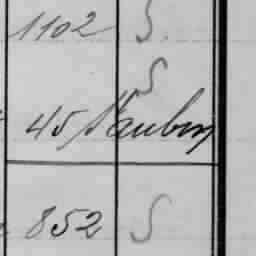 1102 S.
S
45 Sauben
852 S